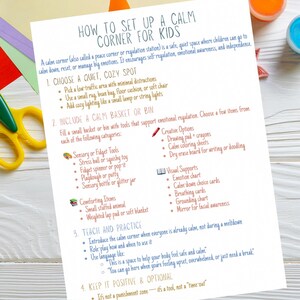 HOW TO SET UP A CALM
CORNER FOR KIDS
A calm corner (also called a peace corner or regulation station) is a safe, quiet space where children can go to
calm down, reset, or manage big emotions. It encourages self-regulation, emotional awareness, and independence.
1. CHOOSE A QUIET, COZY SPOT
• Pick a low-traffic area with minimal distractions.
• Use a small rug, bean bag, floor cushion, or soft chair
• Add cozy lighting like a small lamp or string lights.
2. INCLUDE A CALM BASKET OR BIN
Fill a small basket or bin with tools that support emotional regulation. Choose a few items from
each of the following categories:
Sensory or Fidget Tools
• Stress ball or squishy toy
• Fidget spinner or pop it
• Playdough or putty
• Sensory bottle or glitter jar
Comforting Items
• Small stuffed animal
• Weighted lap pad or soft blanket
Creative Options
• Drawing pad + crayons
• Calm coloring sheets
• Dry erase board for writing or doodling
Visual Supports
• Emotion chart
• Calm down choice cards
• Breathing cards
• Grounding chart
• Mirror for facial awareness
3. TEACH AND PRACTICE
• Introduce the calm corner when everyone is already calm, not during a meltdown
• Role play how and when to use it
• Use language like:
"This is a space to help your body feel safe and calm."
"You can go here when you're feeling upset, overwhelmed, or just need a break."
4. KEEP IT POSITIVE & OPTIONAL
• It's not a punishment zone — it's a tool, not a "time out"